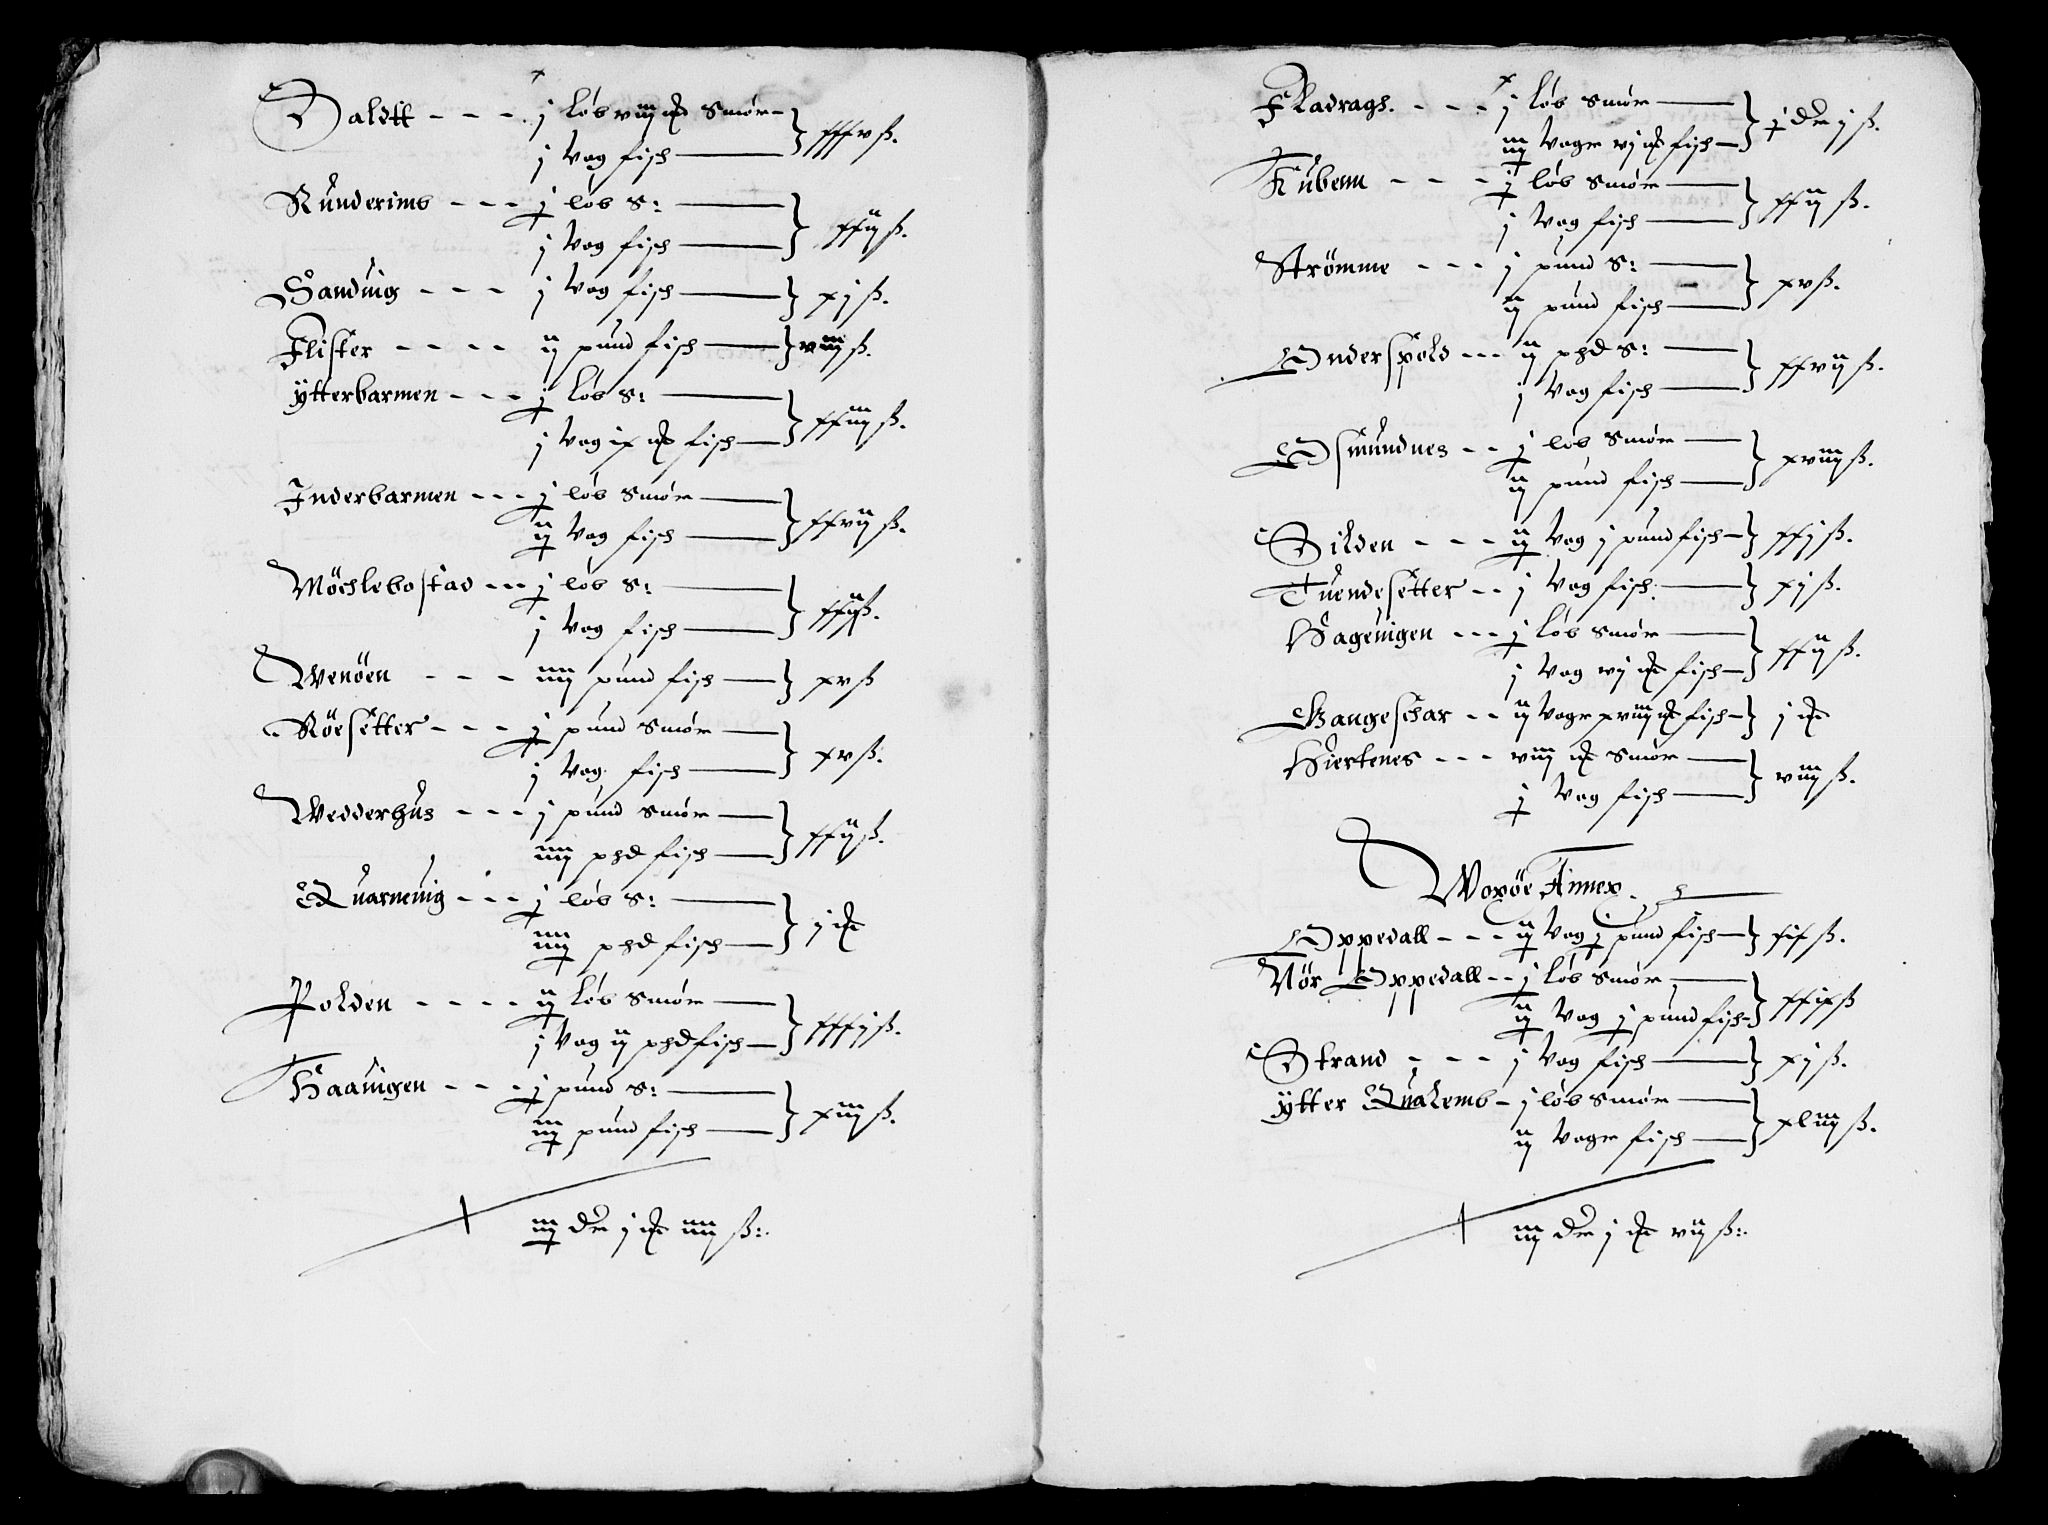 Daldtt - - - j løb viij mk Smør
j Vog fisch } xxxv ß.
Runderimb - - - j løb S:
j Vog fisch } xxij ß.
Sanduig - - - j Vog fisch } xj ß.
Flister - - - - ij pund fisch } viij ß.
ytterbarmen - - - j løb S:
j Vog ix mk fisch } xxiij ß.
Inderbarmen - - - j løb Smør
ij Vog fisch } xxvij ß.
Möchlebostad - - - j løb S:
j Vog fisch } xxij ß.
Wenöen - - - iiij pund fisch } xv ß
Röesetter - - - j pund Smør
j Vog fisch } xv ß.
Wedderhus - - - j pund Smør
iiij phd fisch } xxij ß.
Quarneuig - - - j løb S:
iiij phd fisch } j mk
Polden - - - - ij løb Smør
j Vog ij phd fisch } xxxj ß.
Haauigen - - - j pund S:
iij pund fisch } xiij ß.
iij dr j mk iiij ß:
Fladrags. - - - j løb Smør
iij Vogr vj mk fisch } j dr j ß.
Kubenn - - - j løb Smør
j Vog fisch } xxij ß.
Strömme - - - j pund S:
ij pund fisch } xv ß.
Onderspold - - - ij phd S:
j Vog fisch } xxvij ß.
Osmundnes - - j løb Smør
ij pund fisch } xviij ß.
Silden - - - ij Vog j pund fisch } xxj ß.
Tuendesetter - - j Vog fisch } xj ß.
Hageuigen - - - j løb Smør
j Vog vj mk fisch } xxij ß.
Gangeschar - - ij Vogr xviij mk fisch } j mk
Hiertenes - - - viij mk Smør
j Vog fisch } viij ß.
Woxöe Annex.
Oppedall - - - ij Vog j pund fisch } xix ß.
Nör Oppedall - - j løb Smør
ij Vog j pund fisch } xxix ß
Strand - - - j Vog fisch } xj ß.
ytter Qualemb - j løb Smør
ij Vogr fisch } xliij ß.
iij dr j mk vij ß: